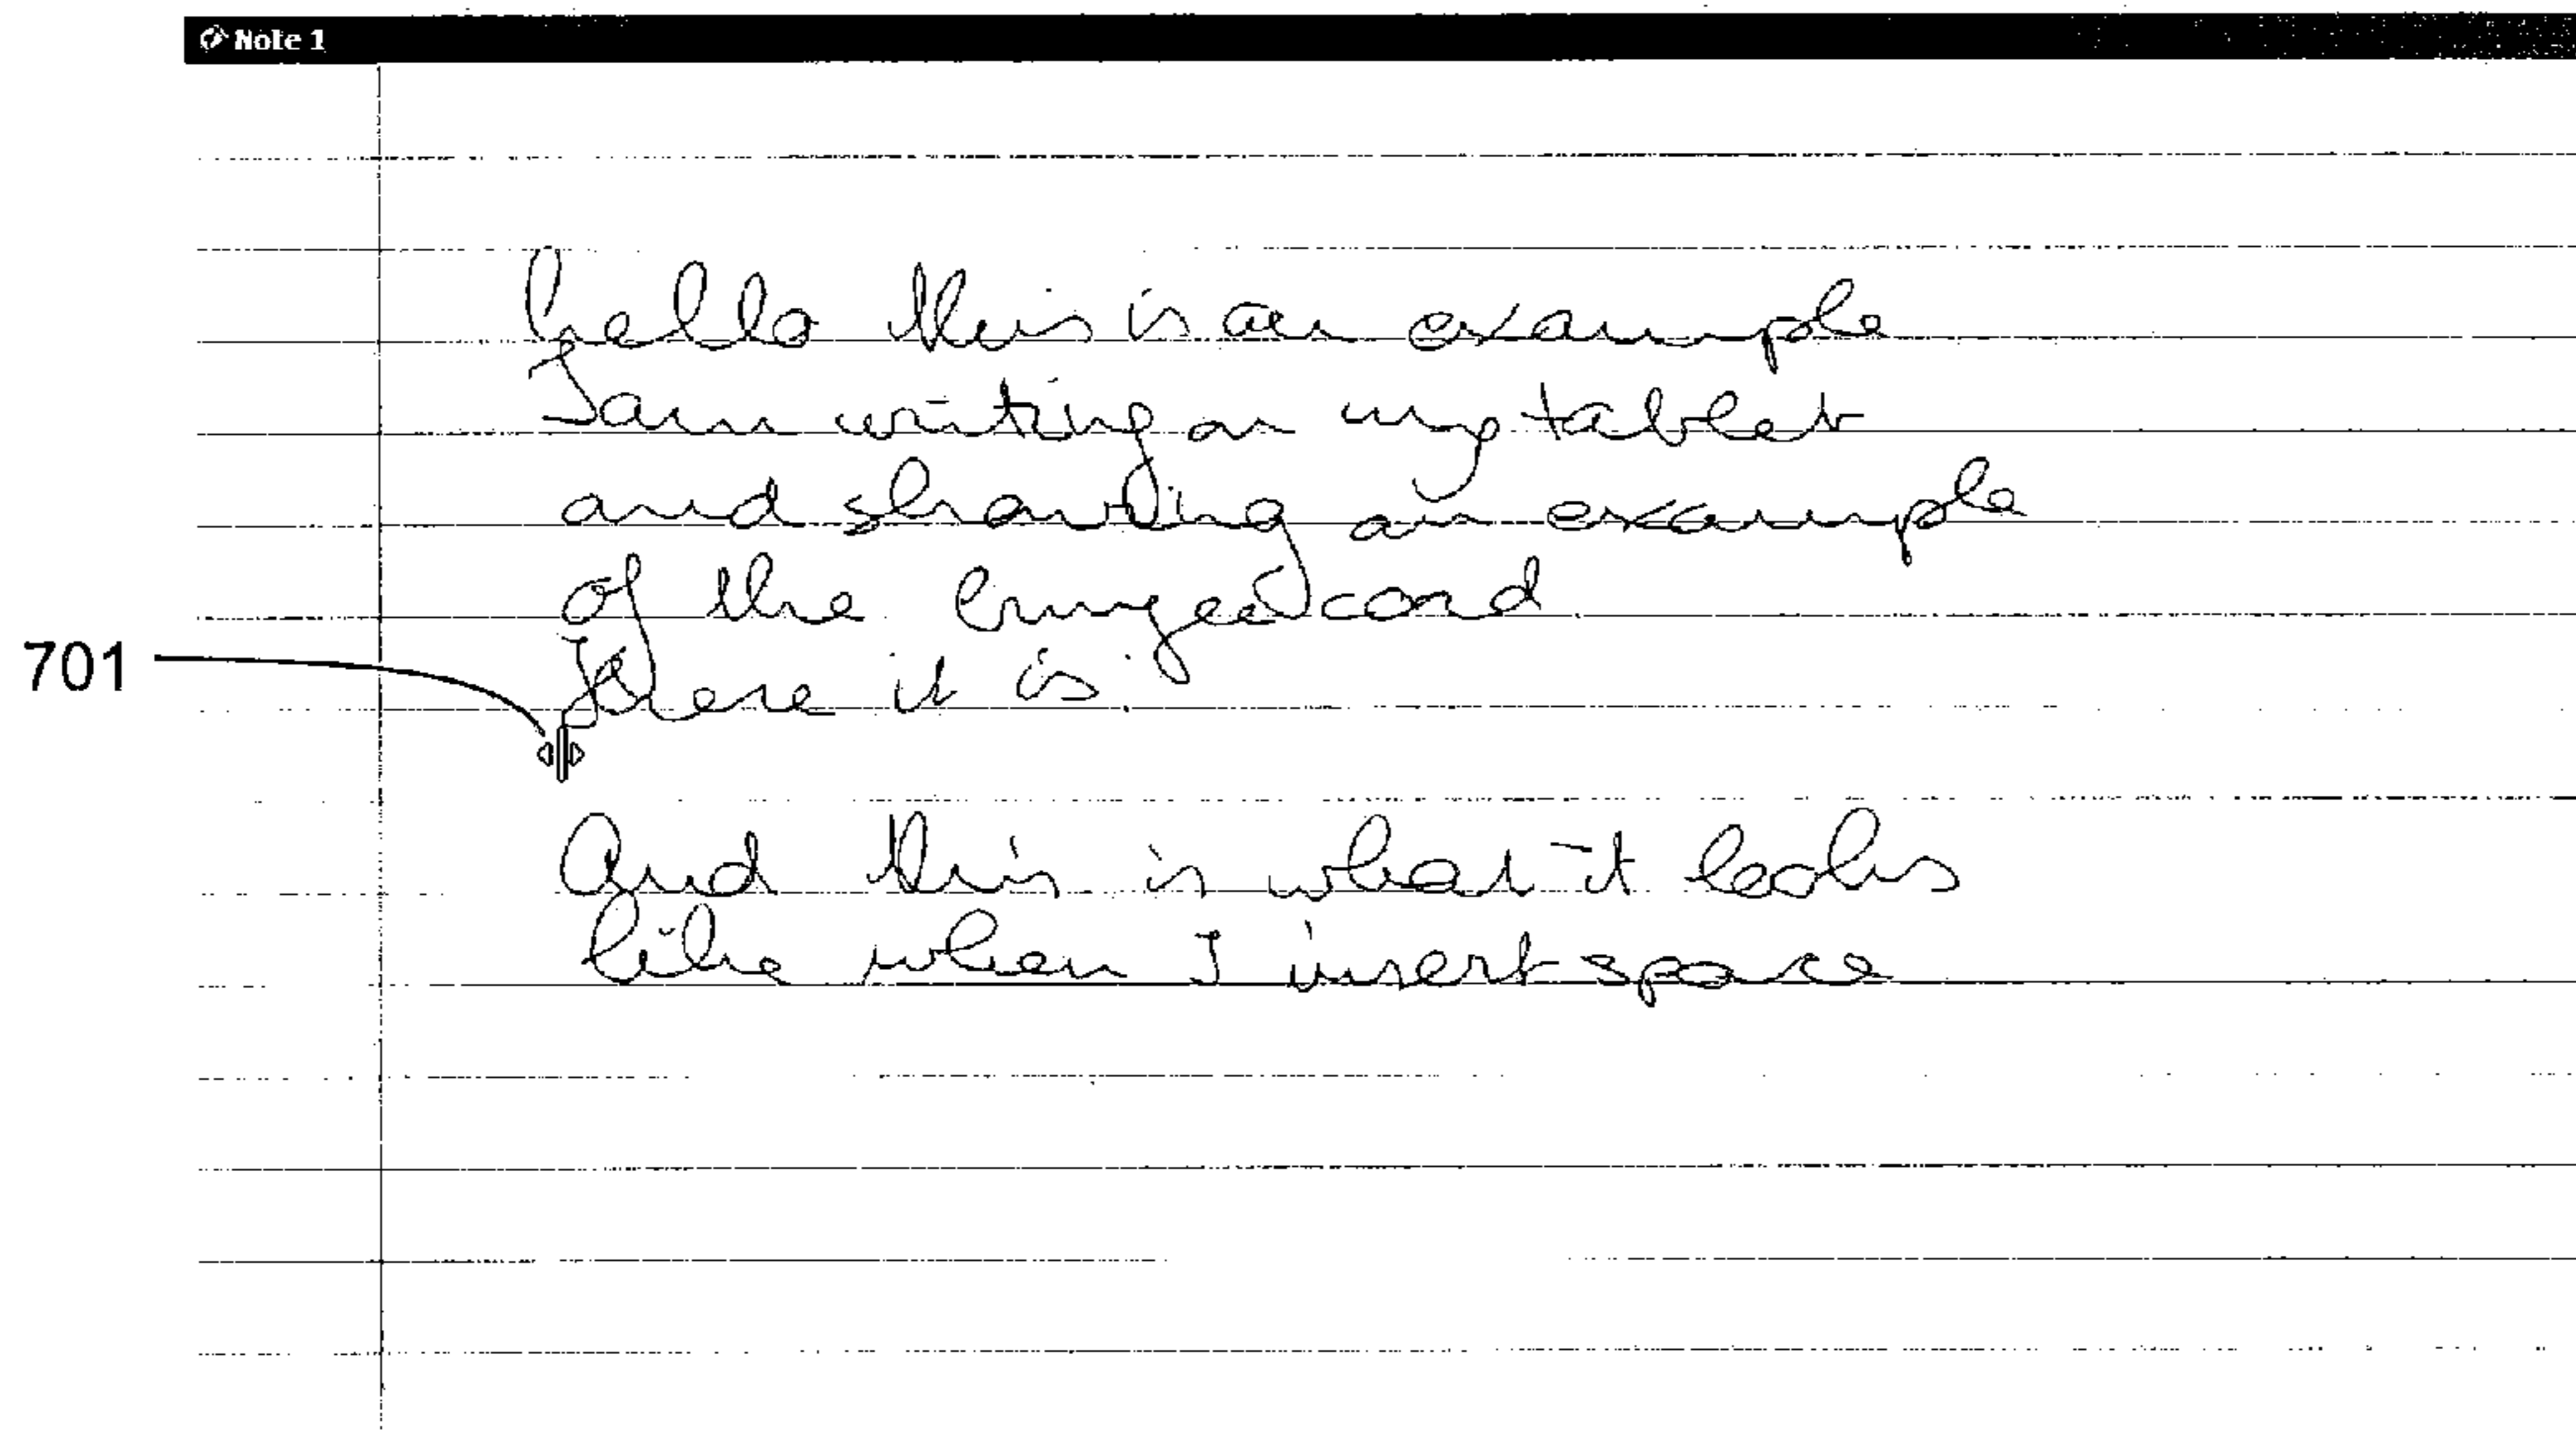 Note 1
hello this is an example
I am writing on my tablet
and showing an example
of the cord
Here it is.
701
And this is what it looks
like when I insert space